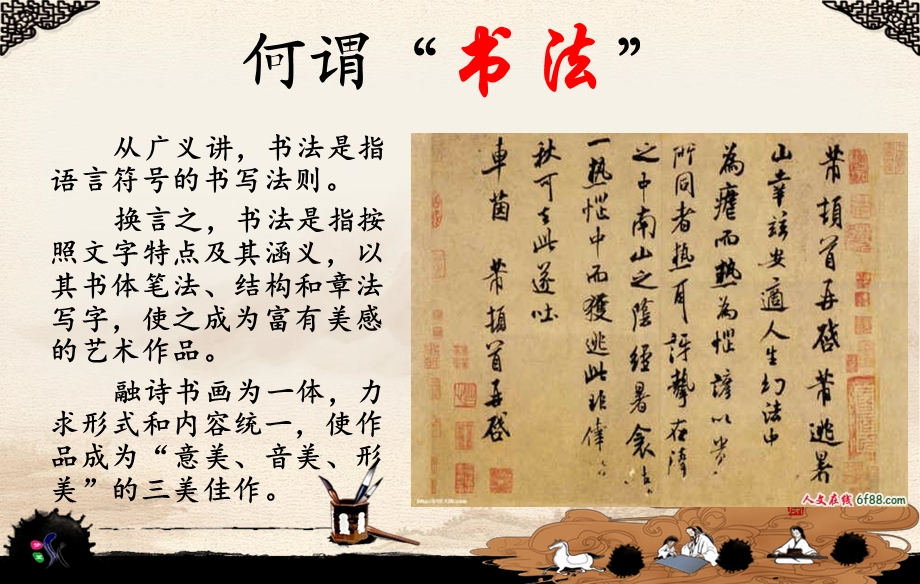 何谓“书法”
从广义讲，书法是指
语言符号的书写法则。
换言之，书法是指按
照文字特点及其涵义，以
其书体笔法、结构和章法
写字，使之成为富有美感
的艺术作品。
融诗书画为一体，力
求形式和内容统一，使作
品成为“意美、音美、形
美”的三美佳作。
芾頓首再啓芾逃暑
山幸兹安適人生幻法中
為瘧而熱為惱諺以貴
所同者熱耳訝
之中南山之陰經暑衾
一熱惱中而獲逃此非偉
秋可去此遂吐
車茵 芾頓首再啓
人文在线 6f88.com